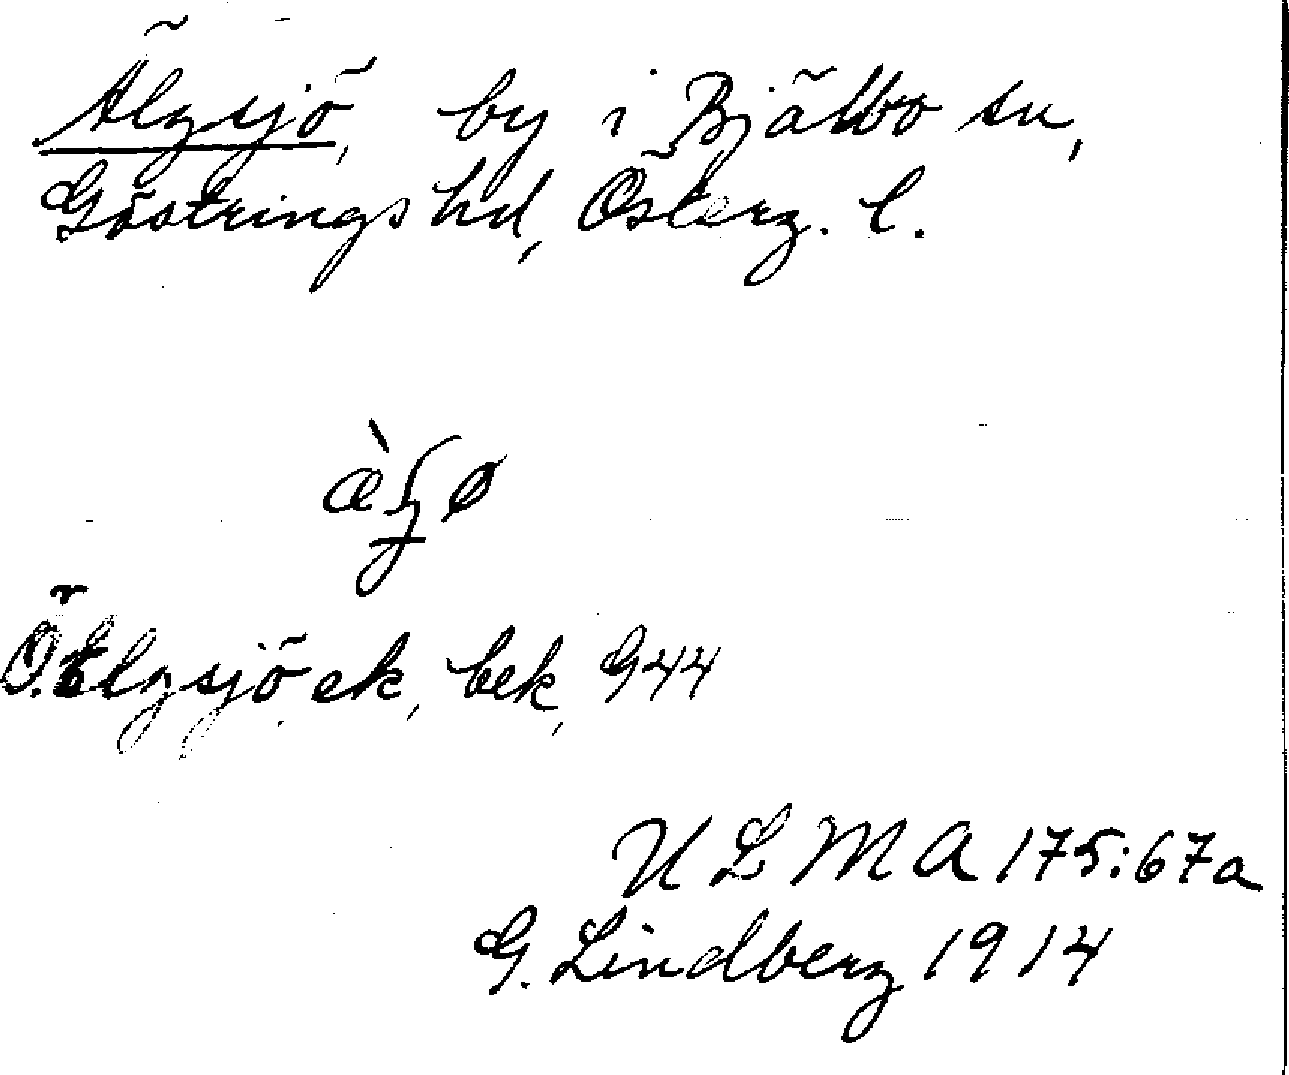 Älgsjö, by i Bjälbo sn,
Göstrings hd, Österg. l.
Ö. Elgsjö ek, bek, G44
ULMA 175:67a
G. Lindberg 1914